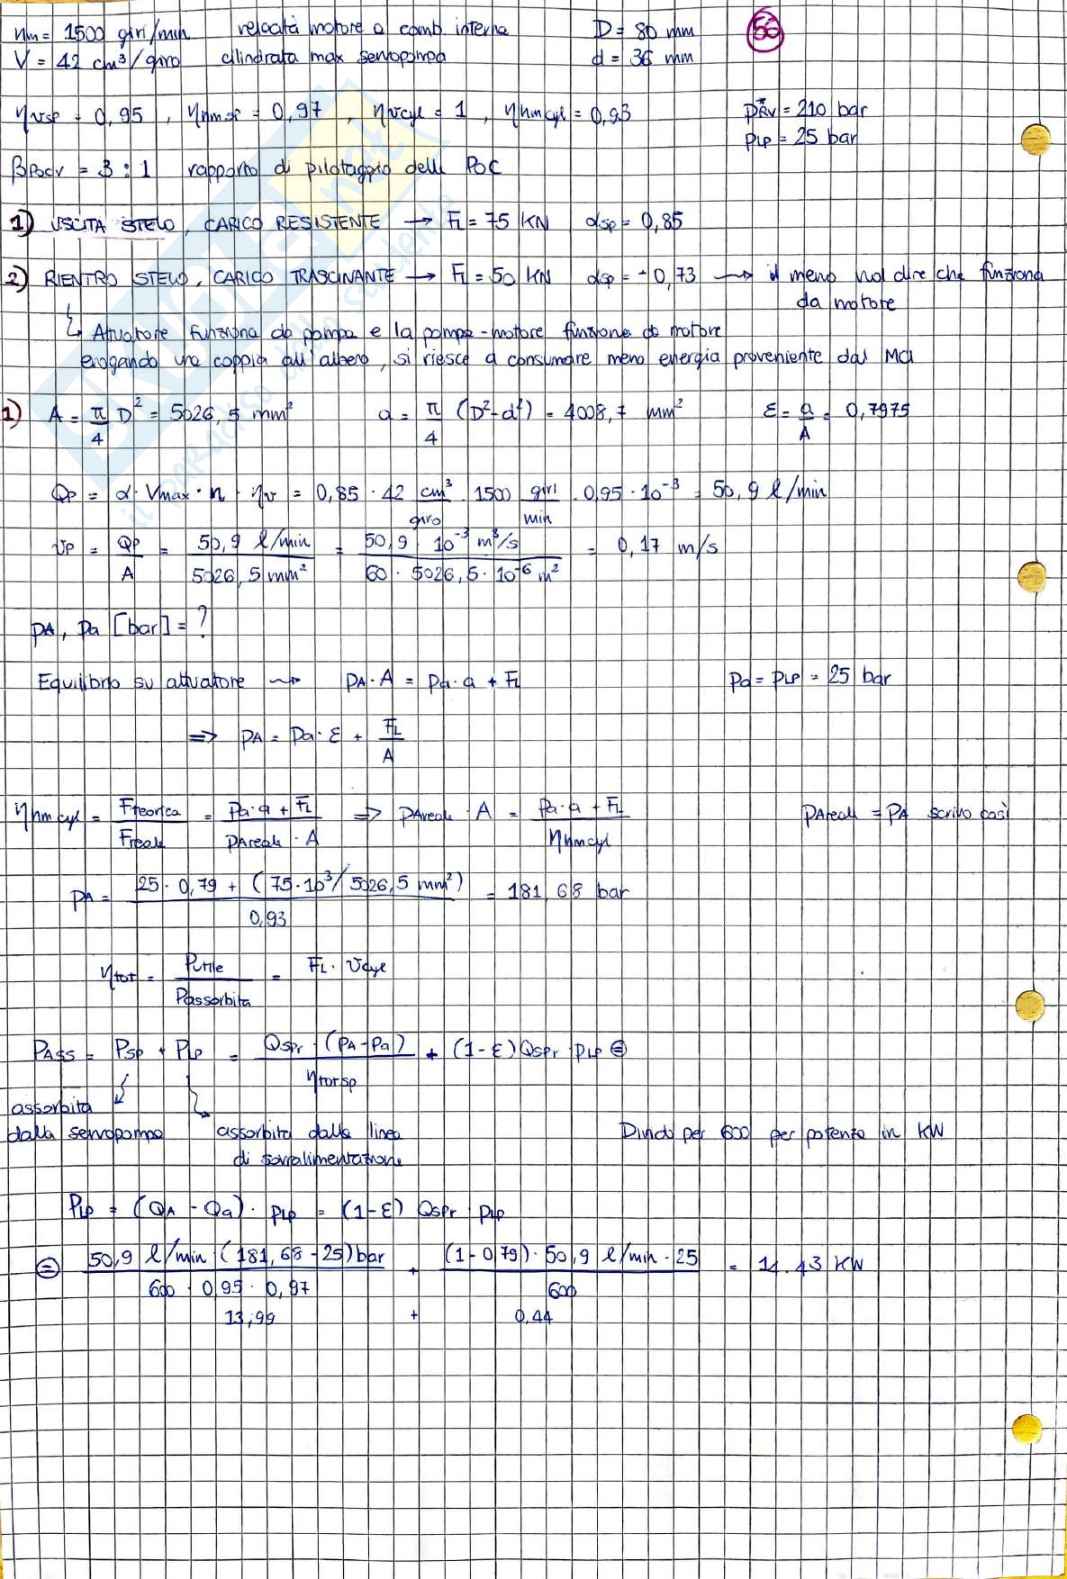 nm = 1500 giri/min velocità motore a comb interna D = 80 mm 56
V = 42 cm³/giro cilindrata max servopompa d = 36 mm
ηvsp = 0,95 , ηhmsp = 0,97 , ηvcyl = 1 , ηhmcyl = 0,93 p*RV = 210 bar
pLp = 25 bar
βPOCV = 3 : 1 rapporto di pilotaggio delle POC
1) USCITA STELO, CARICO RESISTENTE → FL = 75 KN αsp = 0,85
2) RIENTRO STELO, CARICO TRASCINANTE → FL = 50 KN αsp = -0,73 → il meno vuol dire che funziona
da motore
↳ Attuatore funziona da pompa e la pompa-motore funziona da motore
erogando una coppia all'albero, si riesce a consumare meno energia proveniente dal MCI
1) A = π/4 D² = 5026,5 mm² a = π/4 (D²-d²) = 4008,7 mm² ε = a/A = 0,7975
Qp = α · Vmax · n · ηv = 0,85 · 42 cm³/giro · 1500 giri/min · 0,95 · 10⁻³ = 50,9 ℓ/min
vp = Qp/A = 50,9 ℓ/min / 5026,5 mm² = 50,9 · 10⁻³ m³/s / 60 · 5026,5 · 10⁻⁶ m² = 0,17 m/s
pA, pa [bar] = ?
Equilibrio su attuatore → pA · A = pa · a + FL pa = pLp = 25 bar
⇒ pA = pa · ε + FL/A
ηhmcyl = Fteorica/Freale = pa · a + FL / pAreale · A ⇒ pAreale · A = pa · a + FL / ηhmcyl pAreale = pA scrivo così
pA = 25 · 0,79 + (75 · 10³/5026,5 mm²) / 0,93 = 181,68 bar
ηtot = Putile/Passorbita = FL · vcyl
PAss = Psp + PLp = Qspr · (pA-pa) / ηtotsp + (1-ε) Qspr · pLp ⊜
assorbita
dalla servopompa assorbita dalla linea Divido per 600 per potenza in KW
di sovralimentazione
PLp = (QA - Qa) · pLp = (1-ε) Qspr · pLp
⊜ 50,9 ℓ/min · (181,68-25) bar / 600 · 0,95 · 0,97 + (1-0,79) · 50,9 ℓ/min · 25 / 600 = 14.43 KW
13,99 + 0,44